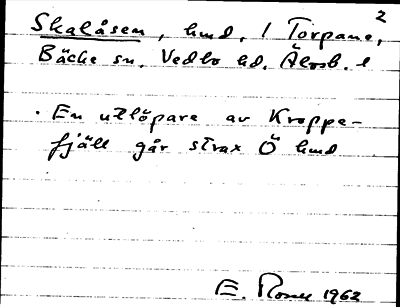 2
Skalåsen, hmd, 1 Torpane,
Bäcke sn. Vedbo hd. Älvsb. l
· En utlöpare av Kroppe-
fjäll går strax Ö hmd
E. 1962